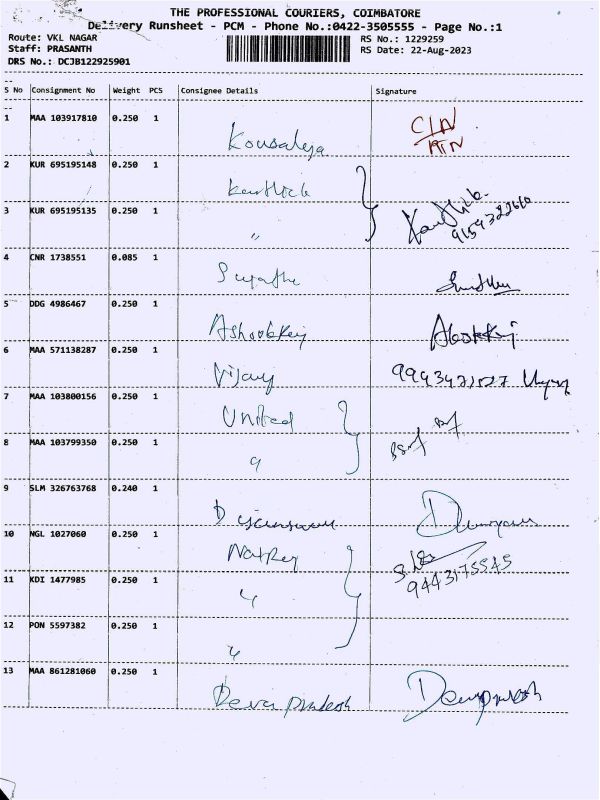 THE PROFESSIONAL COURIERS, COIMBATORE
Delivery Runsheet - PCM - Phone No.:0422-3505555 - Page No.:1
Route: VKL NAGAR RS No.: 1229259
Staff: PRASANTH RS Date: 22-Aug-2023
DRS No.: DCJB122925901
S No Consignment No Weight PCS Consignee Details Signature
1 MAA 103917810 0.250 1 Kousalya
2 KUR 695195148 0.250 1 Karthick
3 KUR 695195135 0.250 1 "
4 CNR 1738551 0.085 1
5 DDG 4986467 0.250 1
6 MAA 571138287 0.250 1 Vijay
7 MAA 103800156 0.250 1 United
8 MAA 103799350 0.250 1 "
9 SLM 326763768 0.240 1
10 NGL 1027060 0.250 1
9443175545
11 KDI 1477985 0.250 1 "
12 PON 5597382 0.250 1 "
13 MAA 861281060 0.250 1 Deva prakash